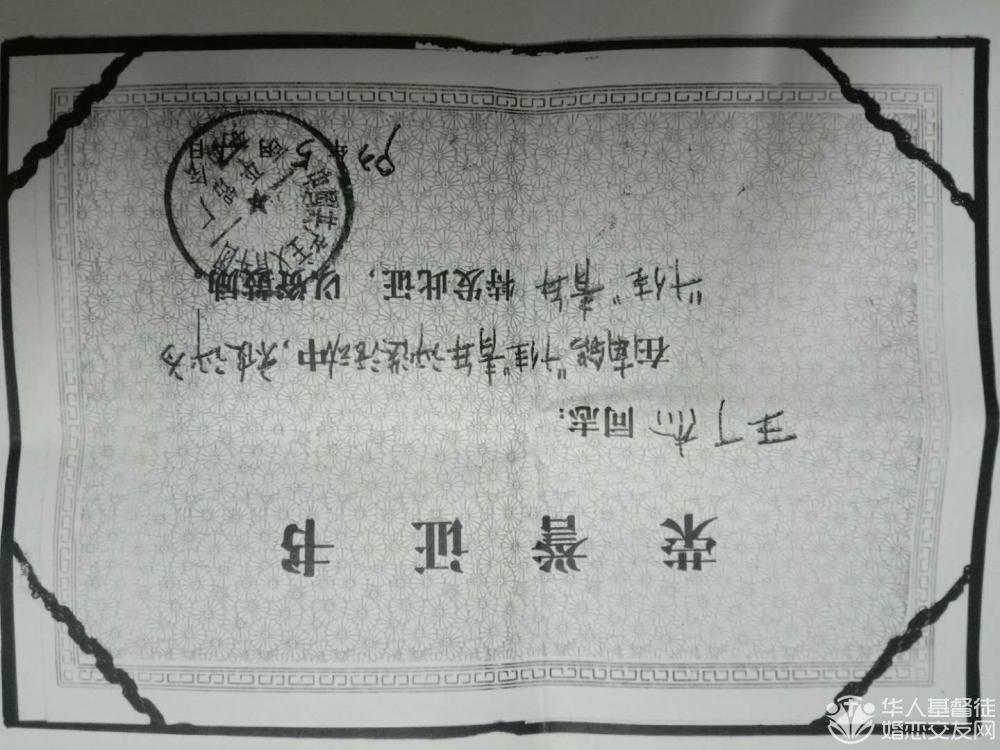 荣誉证书
王丁 同志:
在南 “十佳”青年评选活动中, 被评为
“十佳”青年 特发此证, 以资鼓励。
年 月 日
华人基督徒
婚恋交友网